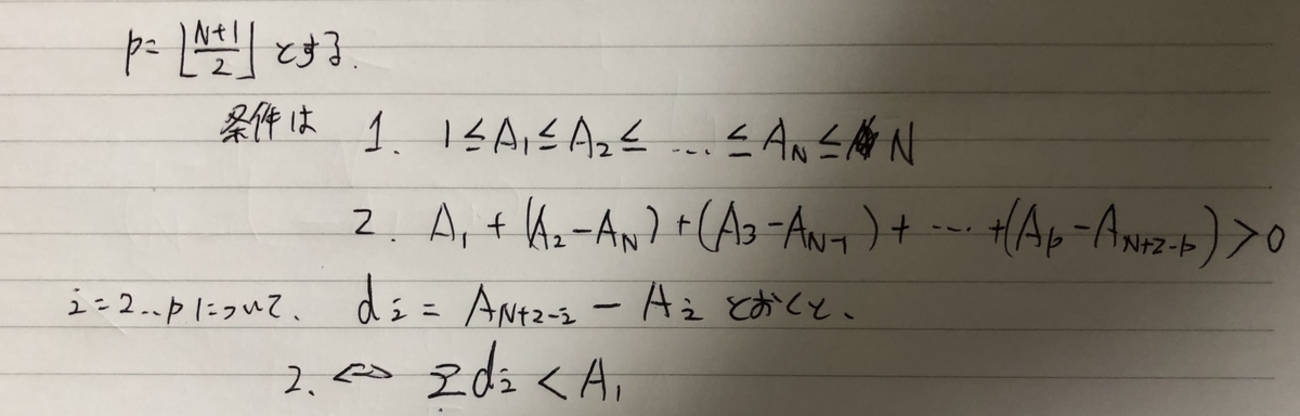 p = ⌊(N+1)/2⌋ とする.
条件は 1. 1 ≤ A₁ ≤ A₂ ≤ … ≤ A_N ≤ N
2. A₁ + (A₂ − A_N) + (A₃ − A_{N−1}) + … + (A_p − A_{N+2−p}) > 0
i = 2..p について、 d_i = A_{N+2−i} − A_i とおくと、
2. ⇔ Σd_i < A₁